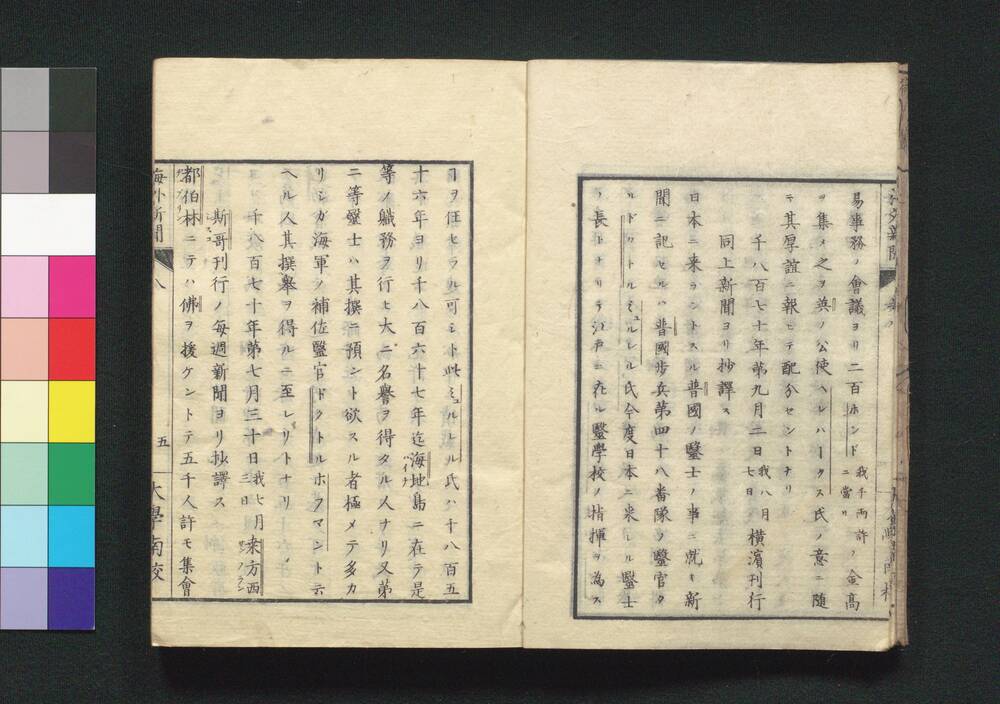 易事務ノ會議ヨリ二百ホンド我千両許ノ金髙
ニ當リ
ヲ集メ之ヲ英ノ公使ハルハークス氏ノ意ニ随
テ其厚誼ニ報ヒテ配分セントナリ
千八百七十年第九月二日我八月七日横濱刊行
同上新聞ヨリ抄譯ス
日本ニ来ラントスル普國ノ醫士ノ事ニ就キ新
聞ニ記セルハ普國歩兵第四十八番隊ノ醫官タ
ルドクトルミュルレル氏今度日本ニ来レル醫士
ノ長トナリテ江戸ニ在ル醫學校ノ指揮ヲ為ス
ヲ任セラル可シト此ミュルレル氏ハ十八百五
十六年ヨリ千八百六十七年迄海地島ニ在テ是
ハイチ
等ノ職務ヲ行ヒ大ニ名譽ヲ得タル人ナリ又第
二等醫士ハ其撰ニ預ント欲スル者極メテ多カ
リシガ海軍ノ補佐醫官ドクトルホフマント云
ヘル人其撰擧ヲ得ルニ至レリトナリ
千八百七十年第七月三十日我七月三日桒方西
斯哥刊行ノ毎週新聞ヨリ抄譯ス
都伯林ニテハ佛ヲ援ケントテ五千人許モ集會
海外新聞
八
五
大學南校